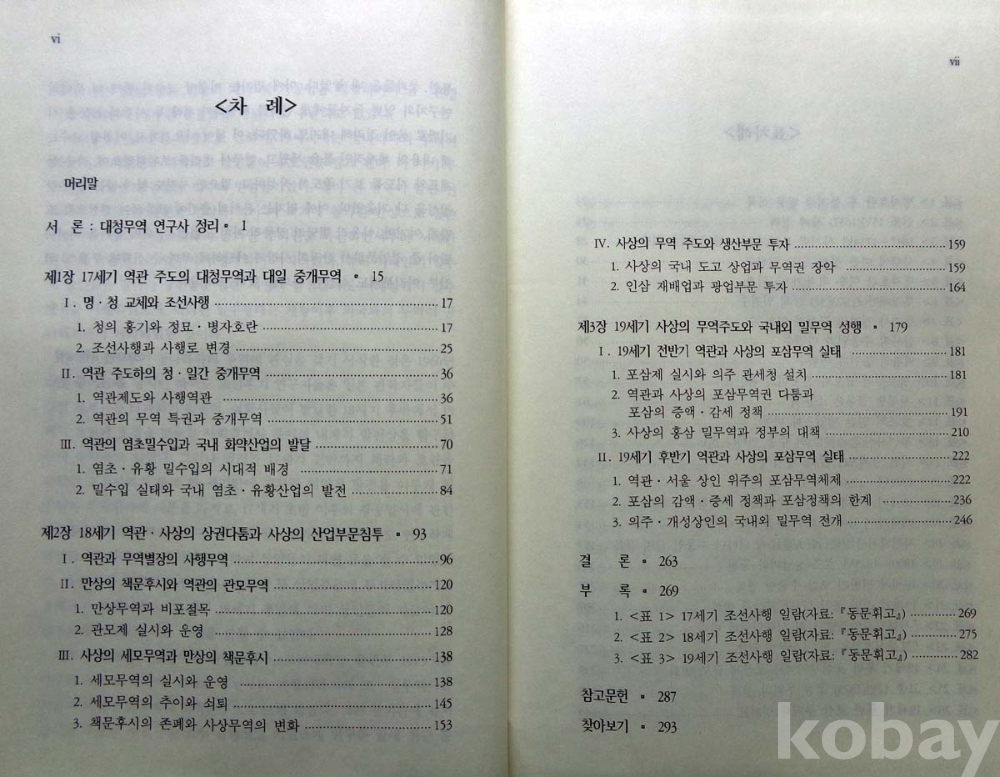 vi
<차 례>
머리말
서 론 : 대청무역 연구사 정리 ▪ 1
제1장 17세기 역관 주도의 대청무역과 대일 중개무역 ▪ 15
Ⅰ. 명·청 교체와 조선사행 ........ 17
1. 청의 흥기와 정묘·병자호란 ........ 17
2. 조선사행과 사행로 변경 ........ 25
Ⅱ. 역관 주도하의 청·일간 중개무역 ........ 36
1. 역관제도와 사행역관 ........ 36
2. 역관의 무역 특권과 중개무역 ........ 51
Ⅲ. 역관의 염초밀수입과 국내 화약산업의 발달 ........ 70
1. 염초·유황 밀수입의 시대적 배경 ........ 71
2. 밀수입 실태와 국내 염초·유황산업의 발전 ........ 84
제2장 18세기 역관·사상의 상권다툼과 사상의 산업부문침투 ▪ 93
Ⅰ. 역관과 무역별장의 사행무역 ........ 96
Ⅱ. 만상의 책문후시와 역관의 관모무역 ........ 120
1. 만상무역과 비포절목 ........ 120
2. 관모제 실시와 운영 ........ 128
Ⅲ. 사상의 세모무역과 만상의 책문후시 ........ 138
1. 세모무역의 실시와 운영 ........ 138
2. 세모무역의 추이와 쇠퇴 ........ 145
3. 책문후시의 존폐와 사상무역의 변화 ........ 153
vii
Ⅳ. 사상의 무역 주도와 생산부문 투자 ........ 159
1. 사상의 국내 도고 상업과 무역권 장악 ........ 159
2. 인삼 재배업과 광업부문 투자 ........ 164
제3장 19세기 사상의 무역주도와 국내외 밀무역 성행 ▪ 179
Ⅰ. 19세기 전반기 역관과 사상의 포삼무역 실태 ........ 181
1. 포삼제 실시와 의주 관세청 설치 ........ 181
2. 역관과 사상의 포삼무역권 다툼과
포삼의 증액·감세 정책 ........ 191
3. 사상의 홍삼 밀무역과 정부의 대책 ........ 210
Ⅱ. 19세기 후반기 역관과 사상의 포삼무역 실태 ........ 222
1. 역관·서울 상인 위주의 포삼무역체제 ........ 222
2. 포삼의 감액·증세 정책과 포삼정책의 한계 ........ 236
3. 의주·개성상인의 국내외 밀무역 전개 ........ 246
결 론 ▪ 263
부 록 ▪ 269
1. <표 1> 17세기 조선사행 일람(자료: 『동문휘고』) ........ 269
2. <표 2> 18세기 조선사행 일람(자료: 『동문휘고』) ........ 275
3. <표 3> 19세기 조선사행 일람(자료: 『동문휘고』) ........ 282
참고문헌 ▪ 287
찾아보기 ▪ 293
kobay